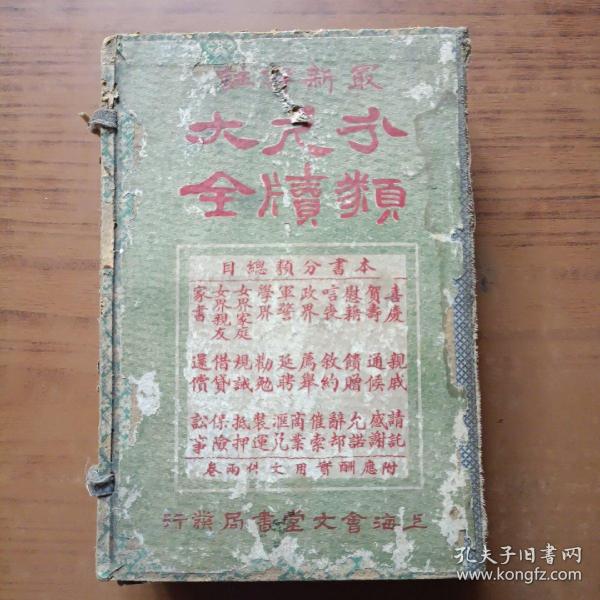 最新註
分類
尺牘
大全
本書分類總目
喜慶 賀壽 慰藉 唁喪 政界 軍警 學界 女界家庭 女界親友 家書
親戚 通候 饋贈 敘約 薦舉 延聘 勸勉 規誡 借貸 還債
請託 感謝 允諾 辭却 催索 商業 滙兌 裝運 抵押 保險 訟事
附應酬實用文件兩卷
上海會文堂書局發行
孔夫子旧书网
www.kongfz.com